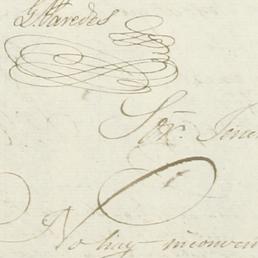 G. Paredes
Sor. Tene
No hay inconven